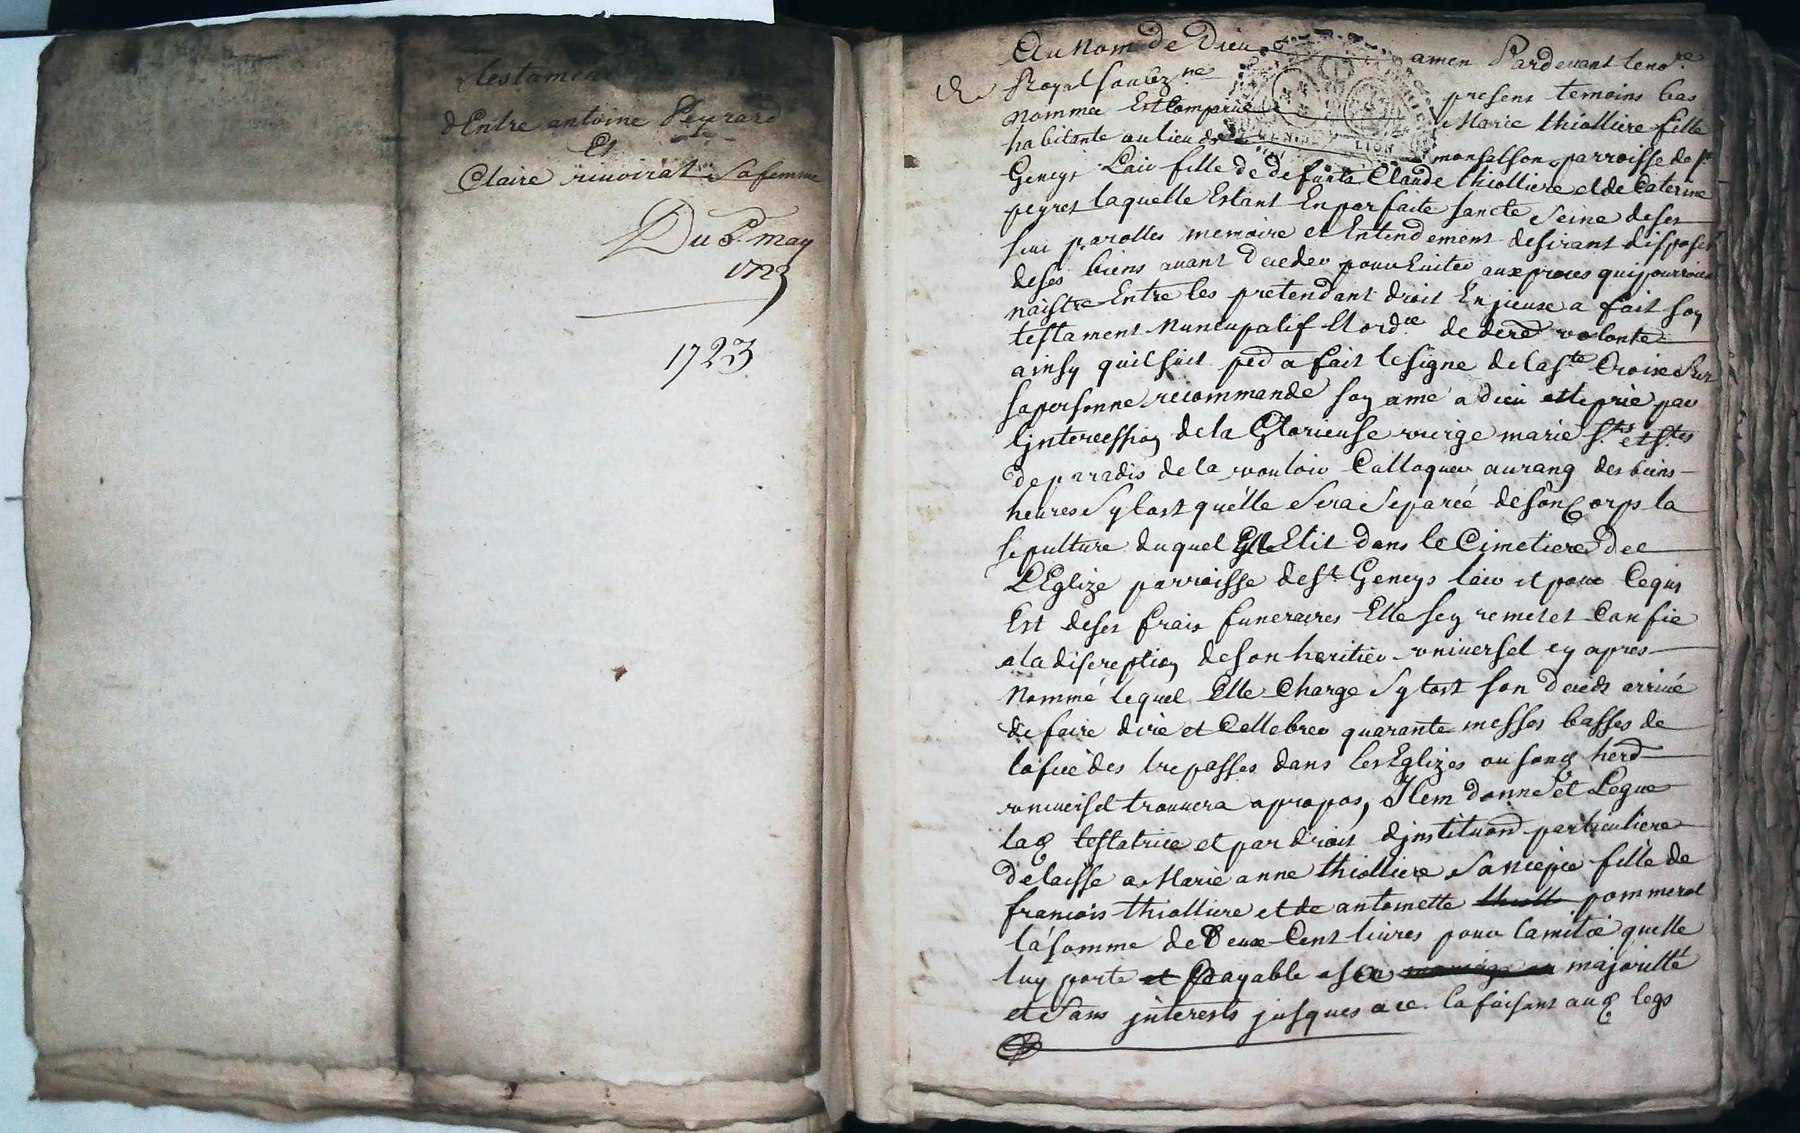 testament
d'Entre antoine Peyrard
Et
Claire riuoirat sa femme
Du 8e may
1723
1723
Au Nom de Dieu amen Pardevant le no.re
Royal souz.ne presens temoins bas
nommés Est Comparue Marie thiolliere fille
habitante au lieu de monsalson parroisse de st
Geneys Lair fille de defunts Claude thiolliere et de Caterine
peyret laquelle Estant En parfaite sancté seine de ses
sens parolles memoire et Entendement desirant disposer
de ses biens auant deceder pour Euiter aux proces qui pourroient
naistre Entre les pretendant droit En jceux a fait son
testament nuncupatif Et ord.ce de dere volonte
ainsy quil suit a fait le signe de la ste Croix sur
sa personne recommandé son ame a dieu et le prie par
l'jntercession de la Glorieuse vierge marie s.ts et s.tes
de paradis de la vouloir Colloquer au rang des biens
heures sy tost qu'elle sera separée de son Corps la
sepulture duquel Elle Elit dans le Cimetiere de
L'Eglize parroisse de st Geneys lair et pour Ce qui
Est de ses frais funeraires Elle s'en remet et Confie
a la discreption de son heritier vniversel cy apres
Nommé lequel Elle Charge sy tost son deceds arriué
de faire dire et Cellebrer quarante messes basses de
des trepasses dans les Eglizes ou son d herd
vniuersel trouuera apropos, Jtem donne et Legue
lad testatrice et par droit d'jnstituaon particuliere
delaisse a Marie anne thiolliere sa niepce fille de
francois thiolliere et de antoinette thioll pommerol
la somme de Deux Cent liures pour lamitié quelle
luy porte et Payable a sa majorité
et sans jnterests jusques a ce. la faisant aud legs